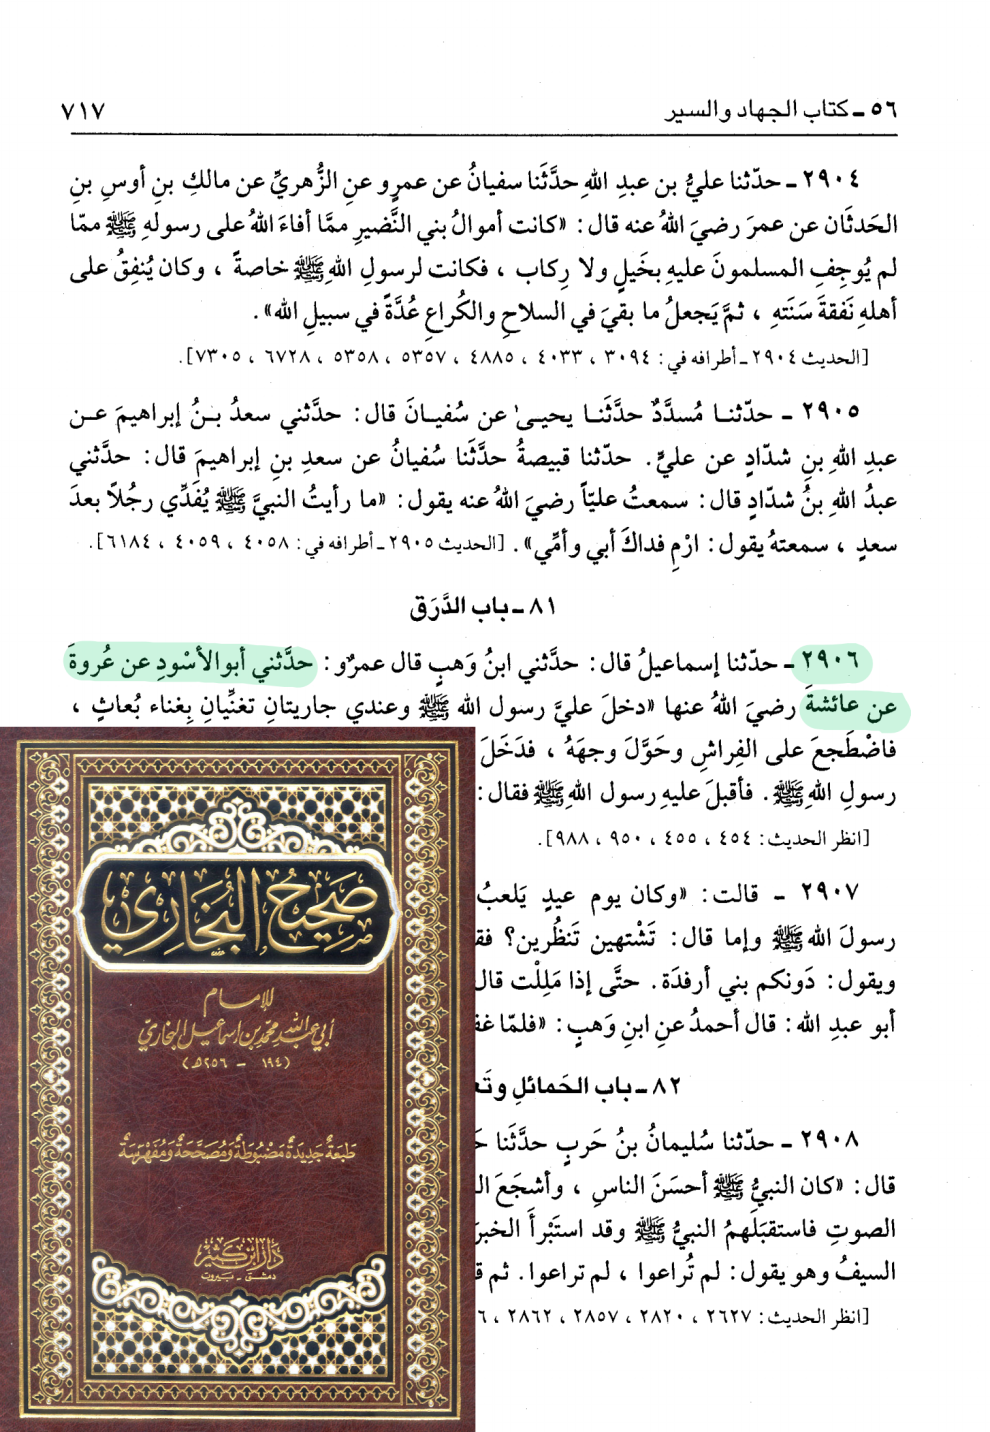 ٥٦ ـ كتاب الجهاد والسير ٧١٧
٢٩٠٤ ـ حدّثنا عليُّ بن عبدِ اللهِ حدَّثَنا سفيانُ عن عمرٍو عنِ الزُّهريِّ عن مالكِ بنِ أوسِ بنِ
الحَدثَان عن عمرَ رضيَ اللهُ عنه قال: «كانت أموالُ بني النَّضيرِ ممَّا أفاءَ اللهُ على رسولهِ ﷺ ممّا
لم يُوجِفِ المسلمونَ عليهِ بخَيلٍ ولا رِكاب ، فكانت لرسولِ اللهِ ﷺ خاصةً ، وكان يُنفِقُ على
أهلهِ نَفقةَ سَنَتهِ ، ثمَّ يَجعلُ ما بقيَ في السلاحِ والكُراعِ عُدَّةً في سبيلِ الله».
[الحديث ٢٩٠٤ ـ أطرافه في: ٣٠٩٤ ، ٤٠٣٣ ، ٤٨٨٥ ، ٥٣٥٧ ، ٥٣٥٨ ، ٦٧٢٨ ، ٧٣٠٥].
٢٩٠٥ ـ حدّثنـا مُسدَّدٌ حدَّثَنـا يحيـىٰ عن سُفيـانَ قال: حدَّثني سعدُ بـنُ إبراهيمَ عـن
عبدِ اللهِ بنِ شدّادٍ عن عليٍّ. حدّثنا قبيصةُ حدَّثَنا سُفيانُ عن سعدِ بنِ إبراهيمَ قال: حدَّثني
عبدُ اللهِ بنُ شدّادٍ قال: سمعتُ عليّاً رضيَ اللهُ عنه يقول: «ما رأيتُ النبيَّ ﷺ يُفَدِّي رجُلاً بعدَ
سعدٍ ، سمعتهُ يقول: ارْمِ فداكَ أبي وأمِّي». [الحديث ٢٩٠٥ ـ أطرافه في: ٤٠٥٨ ، ٤٠٥٩ ، ٦١٨٤].
٨١ ـ باب الدَّرَق
٢٩٠٦ ـ حدّثنا إسماعيلُ قال: حدَّثني ابنُ وَهبٍ قال عمرٌو: حدَّثني أبو الأسْودِ عن عُروةَ
عن عائشةَ رضيَ اللهُ عنها «دخلَ عليَّ رسول الله ﷺ وعندي جاريتانِ تغنِّيانِ بِغناء بُعاثٍ ،
فاضْطَجعَ على الفِراشِ وحَوَّلَ وجهَهُ ، فدَخَلَ
رسولِ اللهِ ﷺ. فأقبلَ عليهِ رسول اللهِ ﷺ فقال:
[انظر الحديث: ٤٥٤ ، ٤٥٥ ، ٩٥٠ ، ٩٨٨].
٢٩٠٧ ـ قالت: «وكان يوم عيدٍ يَلعبُ
رسولَ الله ﷺ وإما قال: تَشْتهين تَنظُرين؟
ويقول: دَونكم بني أرفدَة. حتَّى إذا مَلِلْت قال
أبو عبدِ الله: قال أحمدُ عنِ ابنِ وَهبٍ: «فلمّا
٨٢ ـ باب الحَمائلِ
٢٩٠٨ ـ حدّثنا سُليمانُ بنُ حَربٍ حدَّثَنا
قال: «كان النبيُّ ﷺ أحسَنَ الناسِ ، وأشجَعَ
الصوتِ فاستقبَلَهمُ النبيُّ ﷺ وقد استَبْرأ الخبرَ
السيفُ وهو يقول: لم تُراعوا ، لم تراعوا. ثم
[انظر الحديث: ٢٦٢٧ ، ٢٨٢٠ ، ٢٨٥٧ ، ٢٨٦٢ ،
صَحِيحُ البُخَارِي
للإمام
أبي عبد الله محمد بن اسماعيل البخاري
(١٩٤ - ٢٥٦ هـ)
طَبعَةٌ جَدِيدَةٌ مَضْبُوطَةٌ وَمُصَحَّحَةٌ وَمُفَهْرَسَةٌ
دَارُ ابْن كَثِير
دمشق - بيروت